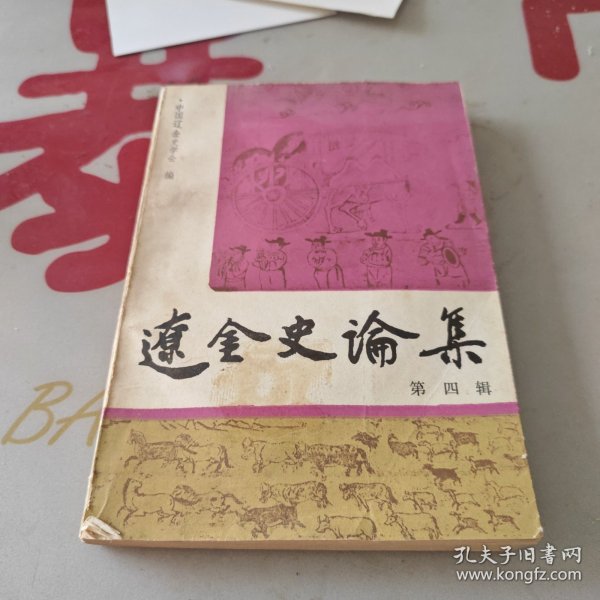 中国辽金史学会 编
遼金史論集
第四辑
BA
孔夫子旧书网
www.kongfz.com